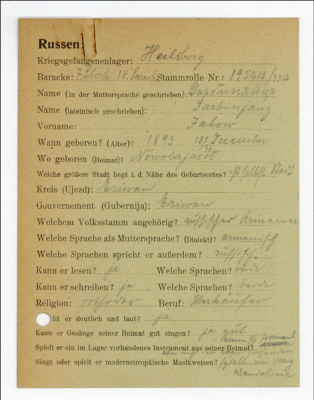 Russen:
Kriegsgefangenenlager: Heilsberg
Baracke: Stammrolle Nr.:
Name (in der Muttersprache geschrieben):
Name (lateinisch geschrieben): Darbinjanz
Vorname: Jakow
Wann geboren? (Alter): 1893 Dezember
Wo geboren (Heimat): Nowobajazet
Welche größere Stadt liegt i. d. Nähe des Geburtsortes? Stadt
Kreis (Ujezd): Eriwan
Gouvernement (Gubernija): Eriwan
Welchem Volksstamm angehörig? russischer Armenier
Welche Sprache als Muttersprache? (Dialekt) armenisch
Welche Sprachen spricht er außerdem? russisch
Kann er lesen? ja Welche Sprachen? beide
Kann er schreiben? ja Welche Sprachen? beide
Religion: orthodox Beruf: Verkäufer
ht er deutlich und laut? ja
Kann er Gesänge seiner Heimat gut singen? ja gut
Spielt er ein im Lager vorhandenes Instrument aus seiner Heimat?
Singt oder spielt er moderneuropäische Musikweisen? spielt ein wenig
Mandoline